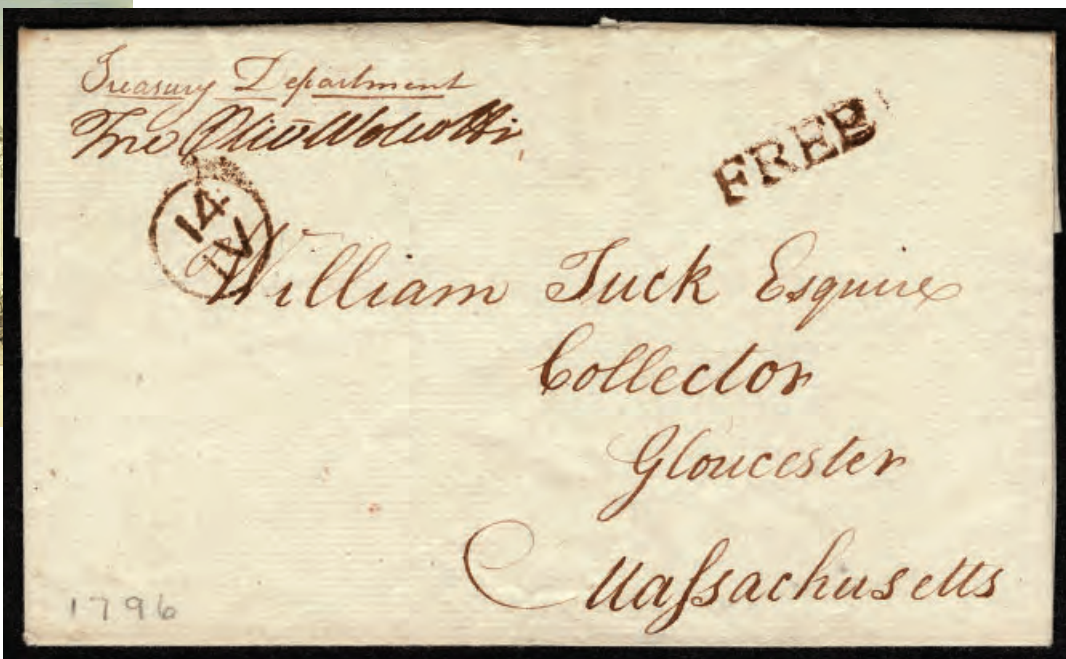 Treasury Department
Free Oliv Wolcott Jr
FREE
14
IV
William Tuck Esquire
Collector
Gloucester
Maſsachusetts
1796